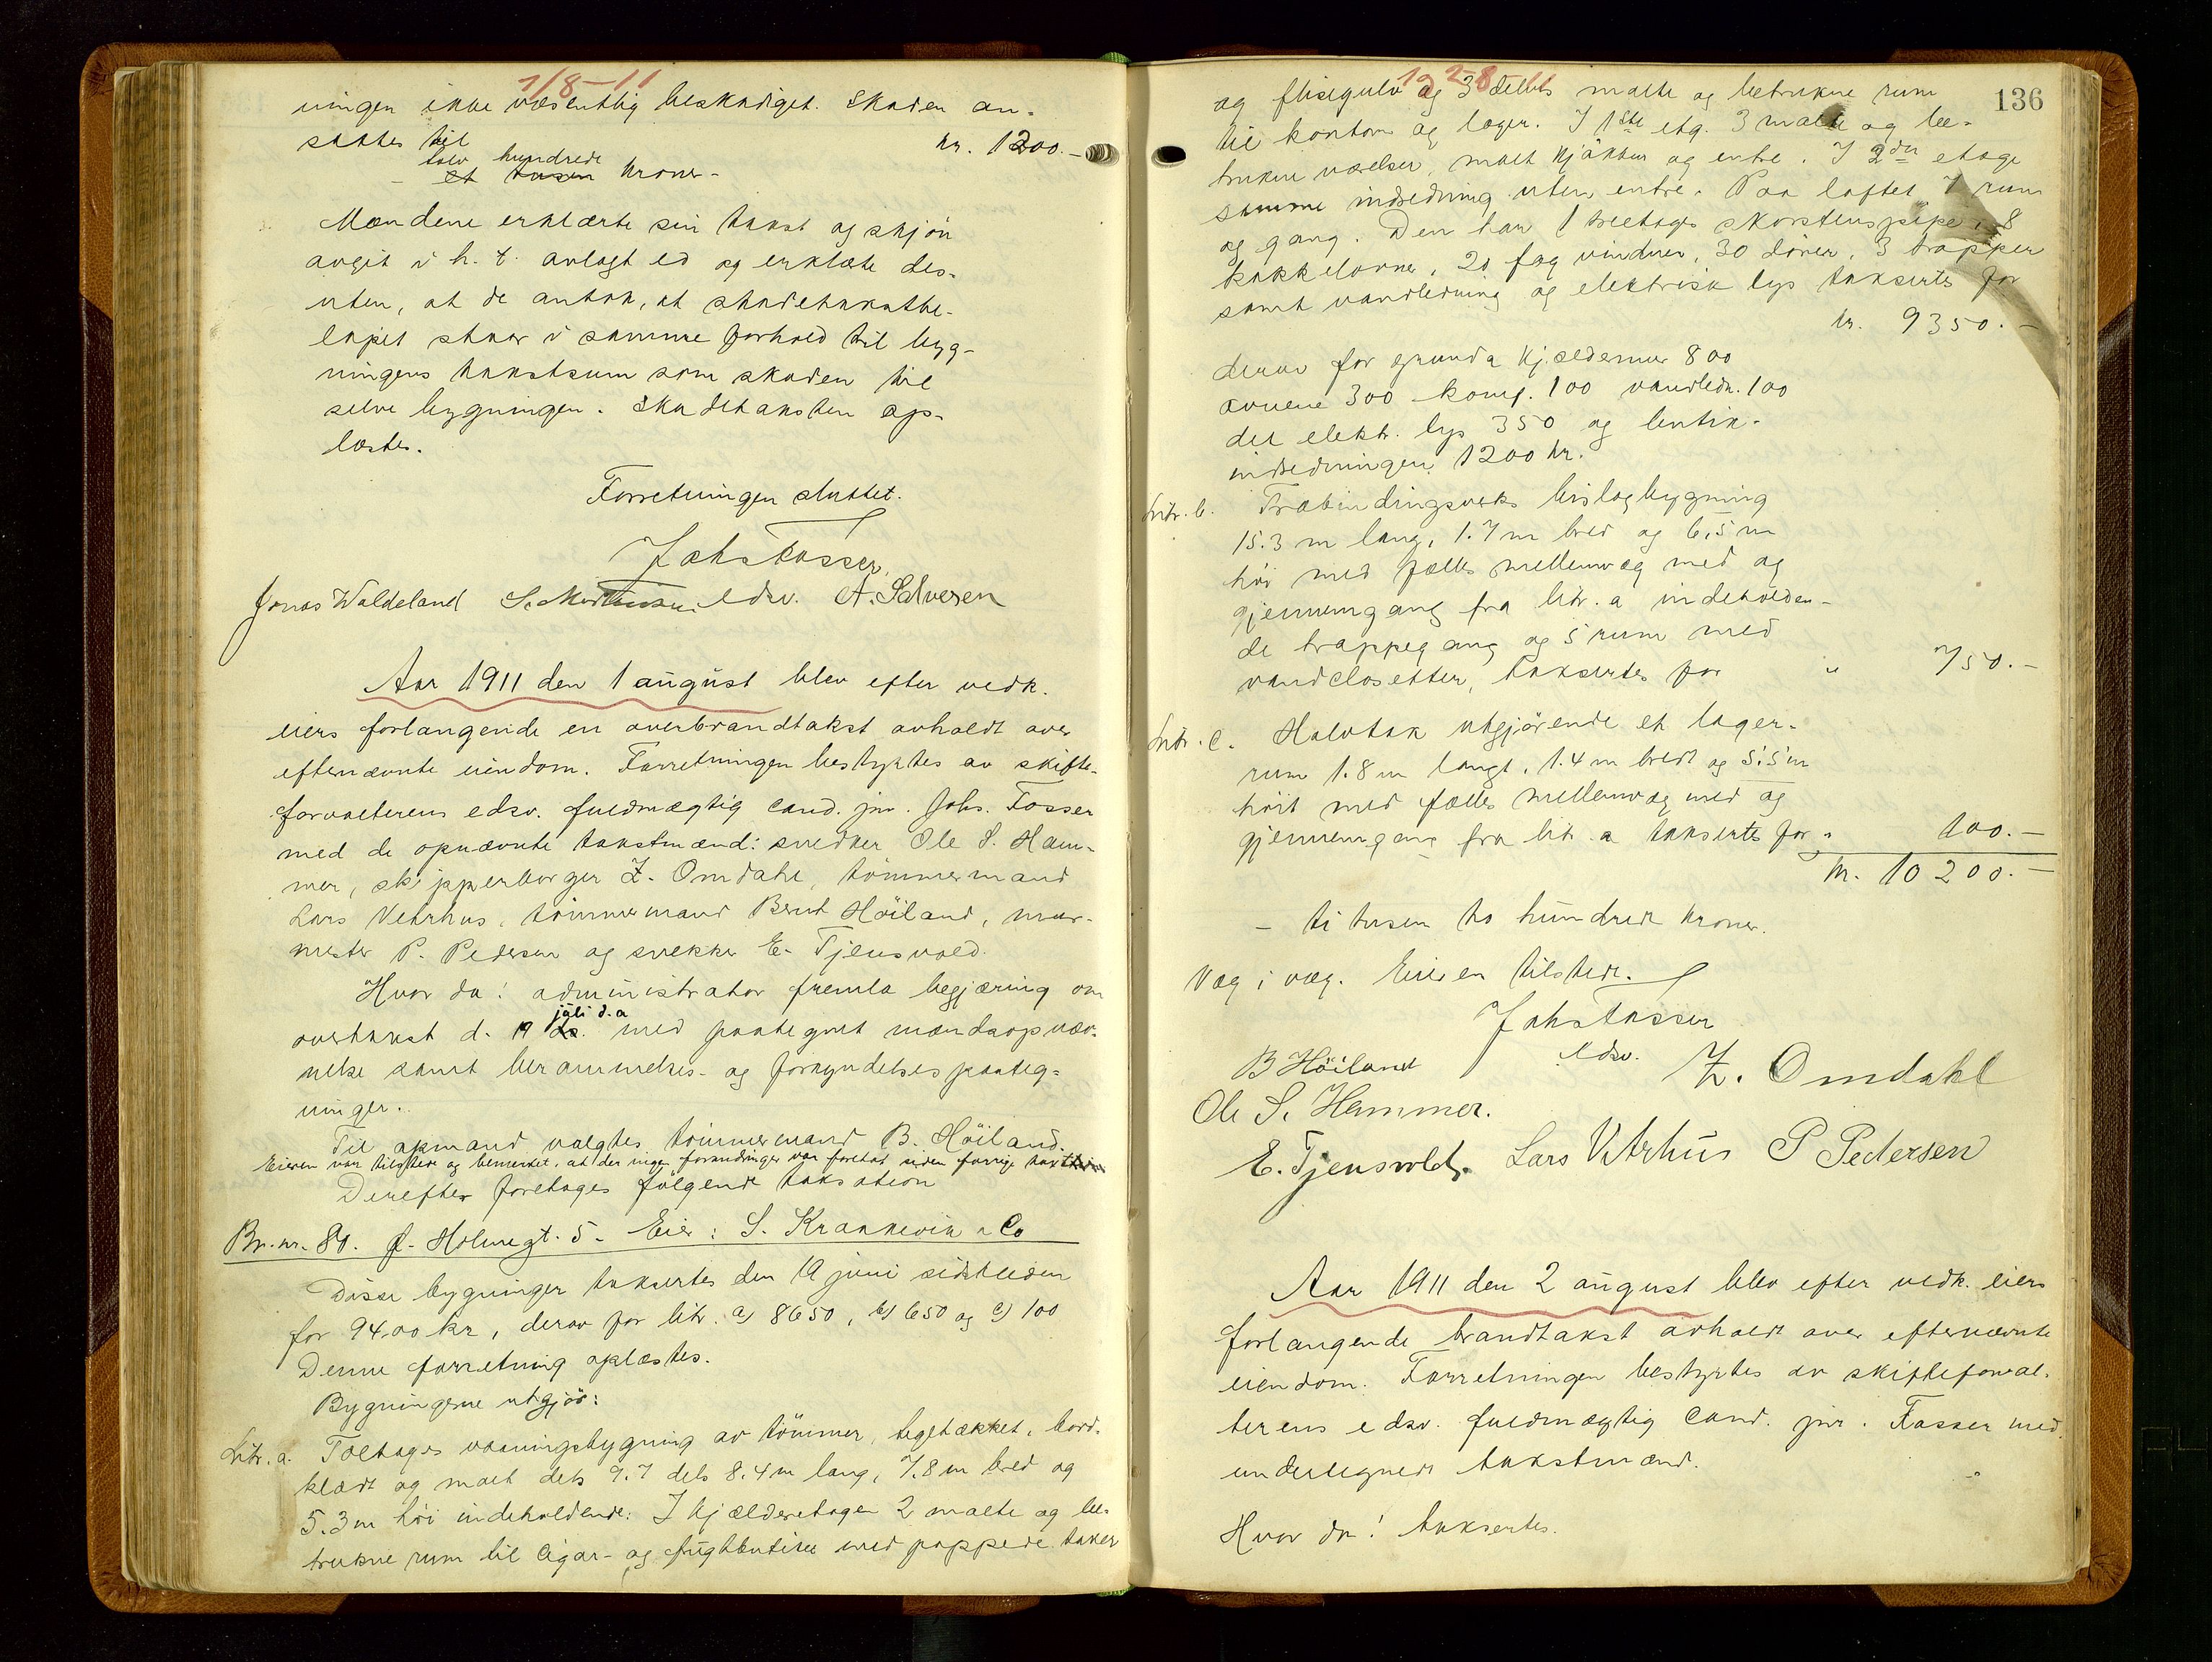 1/8-11
ningen ikke væsentlig beskadiget. Skaden an-
sattes til kr. 1200.-
tolv hundrede
- et tusen kroner -
Mændene erklærte sin takst og skjön
avgit i h. t. avlagt ed og erklærte des-
uten, at de antok, at skadetakstbe-
løpet staar i samme forhold til byg-
ningens takstsum som skaden til
selve bygningen. Skadetaksten op-
læstes.
Forretningen sluttet.
Johs Fosser
Jonas Waldeland S. Mortensen edsv. A. Salvesen
Aar 1911 den 1 august blev efter vedk.
eiers forlangende en overbrandtakst avholdt over
efternævnte eiendom. Forretningen bestyrtes av skifte-
forvalterens edsv. fuldmægtig cand. jur. Johs. Fosser
med de opnævnte takstmænd: snedker Ole S. Ham-
mer, skipperborger Z. Omdahl, tömmermand
Lars Vetrhus, tömmermand Bernt Höiland, mur-
mester P. Pedersen og snekker E. Tjensvold.
Hvor da! administrator fremla begjæring om
juli d.a
overtakst d. 19 ds. med paategnet mandsopnæv-
nelse samt berammelses- og forkyndelsespaateg-
ninger.
Til opmand valgtes tömmermand B. Höiland.
Eieren var tilstede og bemerket, at der ingen forandringer var foretat siden forrige takst
Derefter foretoges følgende taksation
Br. nr. 80. J. Holmegt. 5. Eier: S. Krankevik & Co
Disse bygninger taksertes den 19 juni sidstleden
for 9400 kr, derav for litr. a) 8650, b) 650 og c) 100
Denne forretning oplæstes.
Bygningerne utgjör:
Litr. a. Toetages vaaningsbygning av tömmer, tegltækket, bord-
klædt og malt dels 9.7 dels 8.4 m lang, 7.8 m bred og
5.3 m höi indeholdende: I kjælderetagen 2 malte og be-
trukne rum til cigar- og frugtbutik med pappede taker
12-8-11
136
og flisegulv og 3 dels malte og betrukne rum
til kontor og lager. I 1ste etg. 3 malte og be-
trukne værelser, malt kjökken og entre. I 2den etage
samme indredning uten entre. Paa loftet 7 rum
og gang. Den har 1 treetages skorstenspipe, 8
kakkelovner, 20 fag vinduer, 30 dörer, 3 trapper
samt vandledning og elektrisk lys taksertes for
kr. 9350.-
derav for grund & kj.ældermur 800
ovnene 300 komf. 100 vandledn. 100
det elektr. lys 350 og butik-
indredningen 1200 kr.
Litr. b. Træbindingsverks bislagbygning
15.3 m lang, 1.7 m bred og 6,5 m
höi med fælles mellemvæg med og
gjennemgang fra litr. a indeholden-
de trappegang og 5 rum med
vandclosetter, taksertes for " 750.-
Litr. c. Halvtak utgjörende et lager-
rum 1.8 m langt, 1.4 m bredt og 5.5 m
höit med fælles mellemvæg med og
gjennemgang fra litr. a taksertes for " 100.-
kr. 10200.-
- ti tusen to hundrede kroner.
Væg i væg. Eieren tilstede.
Johs Fosser
edsv.
B Höiland
Z. Omdahl
Ole S. Hammer.
E. Tjensvold. Lars Vetrhus P Pedersen
Aar 1911 den 2 august blev efter vedk. eiers
forlangende brandtakst avholdt over efternævnte
eiendom. Forretningen bestyrtes av skifteforval-
terens edsv. fuldmægtig cand. jur. Fosser med
undertegnede takstmænd.
Hvor da! taksertes.